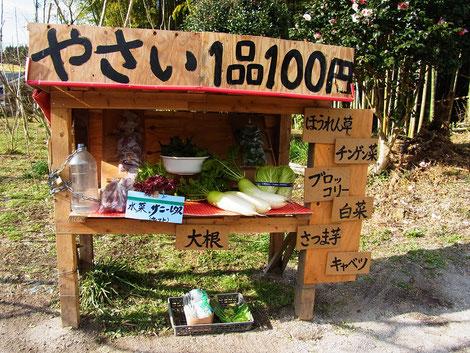 やさい1品100円
ほうれん草
チンゲン菜
ブロッコリー
白菜
さつま芋
キャベツ
大根
水菜、サニーレタス